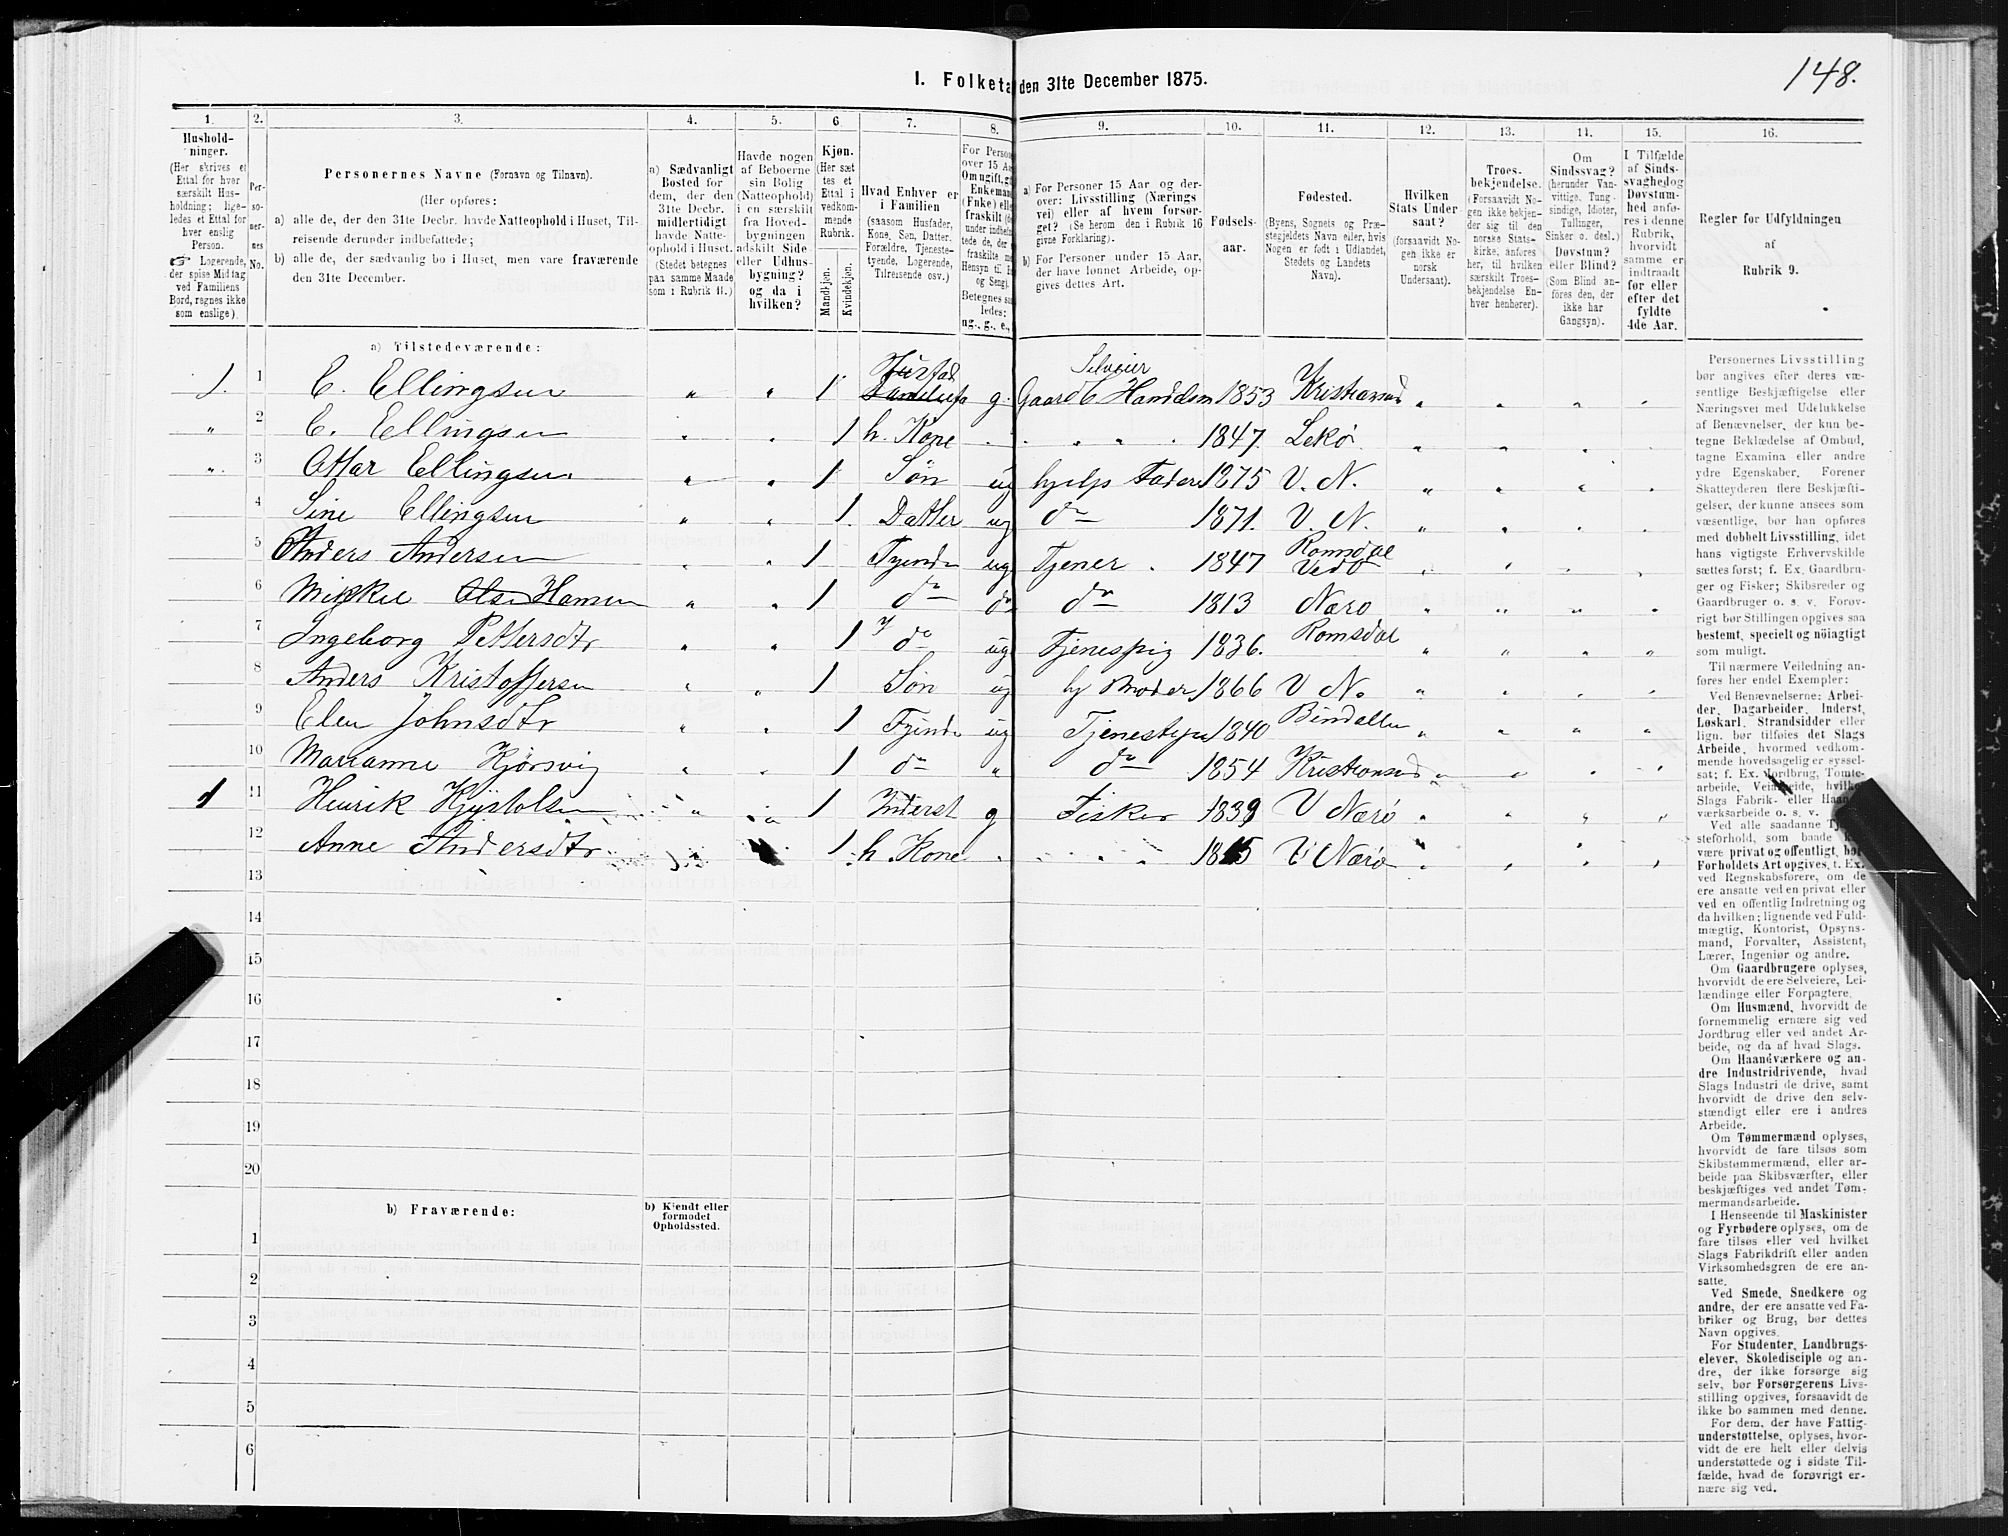 148.
I. Folketa den 31te December 1875.
1. 2. 3. 4. 5. 6. 7. 8. 9. 10. 11. 12. 13. 14. 15. 16.
Hushold-
ninger.
(Her skrives et
Ettal for hver
særskilt Hus-
holdning; lige-
ledes et Ettal for
hver enslig
Person.
☞ Logerende,
der spise Middag
ved Familiens
Bord, regnes ikke
som enslige).
Per-
so-
ner-
nes
No.
Personernes Navne (Fornavn og Tilnavn).
(Her opføres:
a) alle de, der den 31te Decbr. havde Natteophold i Huset, Til-
reisende derunder indbefattede;
b) alle de, der sædvanlig bo i Huset, men vare fraværende
den 31te December.
a) Sædvanligt
Bosted for
dem, der den
31te Decbr.
midlertidigt
havde Natte-
ophold i Huset.
(Stedet betegnes
paa samme Maade
som i Rubrik 11.)
Havde nogen
af Beboerne
sin Bolig
(Natteophold)
i en særskilt
fra Hoved-
bygningen
adskilt Side-
eller Udhus-
bygning?
og da i
hvilken?
Kjøn.
(Her sæt-
tes et
Ettal i
vedkom-
mende
Rubrik.
Mandkjøn.
Kvindekjøn.
Hvad Enhver er
i Familien
(saasom Husfader,
Kone, Søn, Datter,
Forældre, Tjeneste-
tyende, Logerende,
Tilreisende osv.)
For Person
over 15 Aa
Om ugift, g
Enkeman
(Enke) elle
fraskilt
under indbefat
tede de, der
fraskilte m
Hensyn til
og Seng).
Betegnes sa
ledes:
ug., g., e.,
a) For Personer 15 Aar og der-
over: Livsstilling (Nærings-
vei) eller af hvem forsør-
get? (Se herom den i Rubrik 16
givne Forklaring).
b) For Personer under 15 Aar,
der have lønnet Arbeide, op-
gives dettes Art.
Fødsels-
aar.
Fødested.
(Byens, Sognets og Præ-
stegjeldets Navn eller, hvis
Nogen er født i Udlandet,
Stedets og Landets
Navn).
Hvilken
Stats Under-
saat?
(forsaavidt No-
gen ikke er
norsk
Undersaat).
Troes-
bekjendelse.
(Forsaavidt No-
gen ikke bekjen-
der sig til den
norske Stats-
kirke, anføres
her, til hvilken
særskilt Troes-
bekjendelse En-
hver henhører).
Om
Sindssvag?
(herunder Van-
vittige, Tung-
sindige, Idioter,
Tullinger,
Sinker o. desl.)
Døvstum?
eller Blind?
(Som Blind an-
føres den, der
ikke har
Gangsyn).
I Tilfælde
af Sinds-
svaghed og
Døvstum-
hed anfø-
res i denne
Rubrik,
hvorvidt
samme er
indtraadt
før eller
efter det
fyldte
4de Aar.
Regler for Udfyldningen
af
Rubrik 9.
a) Tilstedeværende:
1. 1 E. Ellingsen " " 1 Husfad g. Selveier Gaardb Handelsm 1853 Kristiansund
" 2 E. Ellingsen 1 h. Kone 1847. Lekø
" 3 Ottar Ellingsen " " 1 Søn ug hjelp Fader 1875 V. N.
4 Sine Ellingsen " " 1 Datter ug do 1871. V. N.
5 Anders Andersen " " 1 Tjende ug Tjener 1847 Romsdal Vedø
6 Mikkel Olsen Hansen " " 1 do do do 1813 Nærø
7 Ingeborg Pettersdtr " " 1 do ug Tjenespig 1836. Romsdal
8 Anders Kristoffersen " " 1 Søn ug hj Moder 1866 V N.
9 Elen Johnsdtr " " 1 Tjende ug 1840 Bindallen
10 Marianne Kjørsvig " " 1 do " do 1854 Kristiansund
1 11 Henrik 1 Inderst g Fisker 1839 V Nærø
12 Anne Andersdtr 1 h. Kone V Nærø
13
14
15
16
17
18
19
20
b) Fraværende:
b) Kjendt eller
formodet
Opholdssted.
1
2
3
4
5
6
Personernes Livsstilling
bør angives efter deres væ-
sentlige Beskjæftigelse eller
Næringsvei med Udelukkelse
af Benævnelser, der kun be-
tegne Beklædelse af Ombud,
tagne Examina eller andre
ydre Egenskaber. Forener
Skatteyderen flere Beskjæfti-
gelser, der kunne ansees som
væsentlige, bør han opføres
med dobbelt Livsstilling, idet
hans vigtigste Erhvervskilde
sættes først; f. Ex. Gaardbru-
ger og Fisker; Skibsreder og
Gaardbruger o. s. v. Forøv-
rigt bør Stillingen opgives saa
bestemt, specielt og nöiagtigt
som muligt.
Til nærmere Veiledning an-
føres her endel Exempler:
Ved Benævnelserne: Arbei-
der, Dagarbeider, Inderst,
Løskarl, Strandsidder eller
lign. bør tilføies det Slags
Arbeide, hvormed vedkom-
mende hovedsagelig er syssel-
sat; f. Ex. Jordbrug, Tomte-
arbeide, Veiarbeide, hvilket
Slags Fabrik- eller Haand-
værksarbeide o. s. v.
Ved alle saadanne Tje-
nesteforhold, som baade
være privat og offentlig, bør
Forholdets Art opgives, t. Ex.
ved Regnskabsførere, om de
ere ansatte ved en privat eller
ved en offentlig Indretning og
da hvilken; lignende ved Fuld-
mægtig, Kontorist, Opsyns-
mand, Forvalter, Assistent,
Lærer, Ingeniør og andre.
Om Gaardbrugere oplyses,
hvorvidt de ere Selveiere, Lei-
lændinge eller Forpagtere.
Om Husmænd, hvorvidt de
fornemmelig ernære sig ved
Jordbrug eller ved andet Ar-
beide, og da af hvad Slags.
Om Haandværkere og an-
dre Industridrivende, hvad
Slags Industri de drive, samt
hvorvidt de drive den selv-
stændigt eller ere i andres
Arbeide.
Om Tømmermænd oplyses,
hvorvidt de fare tilsøs som
Skibstømmermænd, eller ar-
beide paa Skibsværfter, eller
beskjæftiges ved andet Tøm-
mermandsarbeide.
I Henseende til Maskinister
og Fyrbødere oplyses, om de
fare tilsøs eller ved hvilket
Slags Fabrikdrift eller anden
Virksomhedsgren de ere an-
satte.
Ved Smede, Snedkere og
andre, der ere ansatte ved Fa-
briker og Brug, bør dettes
Navn opgives.
For Studenter, Landbrugs-
elever, Skoledisciple og an-
dre, der ikke forsørge sig
selv, bør Forsørgerens Livs-
stilling opgives, forsaavidt de
ikke bo sammen med denne.
For dem, der have Fattig-
understøttelse, oplyses, hvor-
vidt de ere helt eller delvis
understøttede og i sidste Til-
fælde, hvad de forøvrigt er-
nære sig ved.